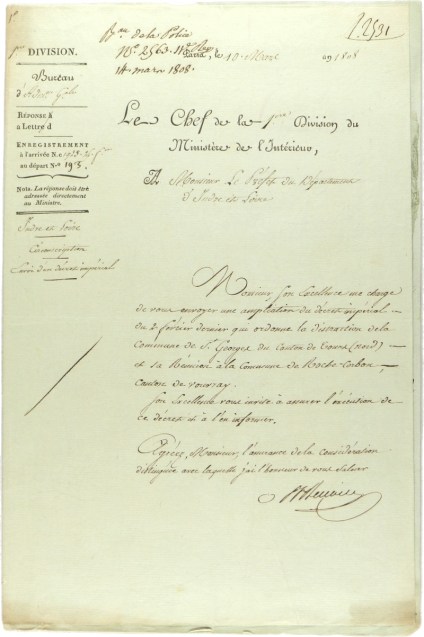 Bau de la Police
P. 2531
No 2563. 11e
14 mars 1808.
Paris, le 10 Mars an 1808
1ere DIVISION.
Bureau
d'Admon Gale
RÉPONSE A
la Lettre d
ENREGISTREMENT
à l'arrivée N.o
au départ No. 193.
Nota. La réponse doit être
adressée directement
au Ministre.
Indre et Loire
Circonscription
Envoi d'un décret impérial
Le Chef de la 1ere Division du
Ministère de l'Intérieur,
A Monsieur Le Préfet du Département
d'Indre et Loire
Monsieur, Son Excellence me charge
de vous envoyer une ampliation du décret impérial
du 2 février dernier qui ordonne la distraction de la
Commune de St Georges du Canton de Tours (nord)
et sa Réunion à la commune de Roche-Corbon
Canton de vouvray.
Son Excellence vous invite à assurer l'exécution de
ce décret et à l'en informer.
Agréez, Monsieur, l'assurance de la considération
distinguée avec laquelle j'ai l'honneur de vous saluer